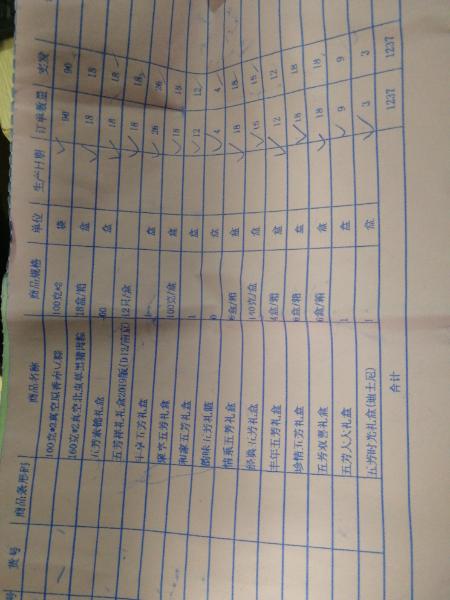 货号 商品条形码 商品名称 商品规格 单位 生产日期 订单数量 实发
100克*2真空原香赤豆粽 100克*2 袋 90 90
160克*2真空北虫草黑猪肉粽 18盒/箱 盒 18 18
五芳素锦礼盒 盒 18 18
五芳禅礼礼盒2019版(D12/南京) 12只/盒 18 18
丰享五芳礼盒 盒 26 26
五芳礼盒 100克/盒 盒 18 18
和家五芳礼盒 1 盒 12 12
韵味五芳礼篮 盒 4 4
情系五芳礼盒 盒/箱 盒 18 18
经典五芳礼盒 140克/盒 盒 18 18
丰年五芳礼盒 4盒/箱 盒 12 12
珍情五芳礼盒 盒/箱 盒 18 18
五芳欢喜礼盒 6盒/箱 盒 18 18
五芳大人礼盒 1 盒 9 9
五芳时光礼盒(迪士尼) 1 盒 3 3
合计 1237 1237